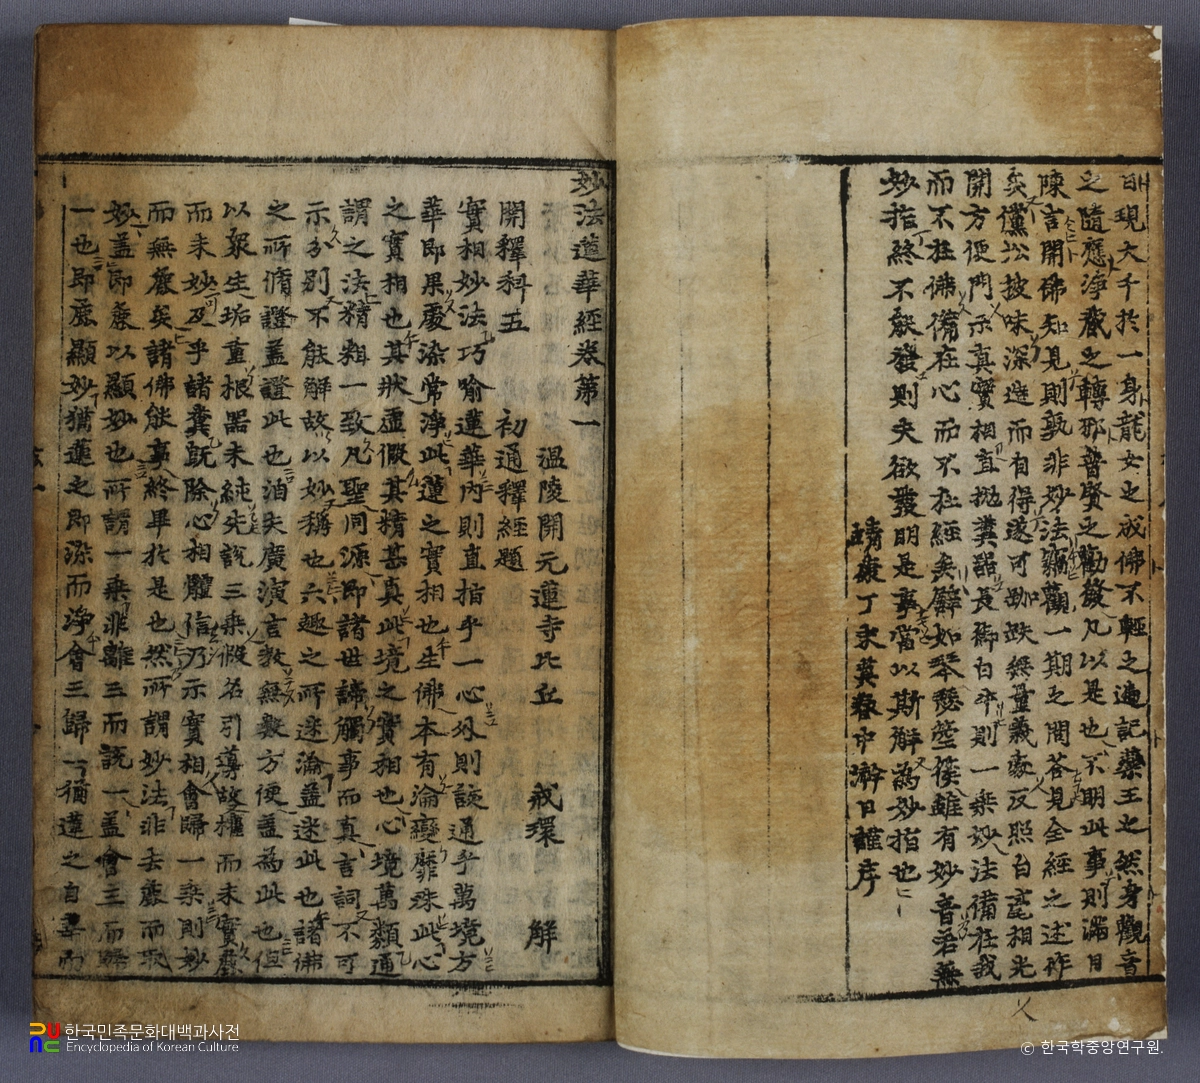 日現大千於一身龍女之成佛不輕之遍記藥王之然身觀音
之隨應淨藏之轉邪普賢之勸發凡以是也不明此事則滿目
陳言開佛知見則孰非妙法竊觀一期之問答見全經之述作
矣儻披味深造而有得遂可跏趺無量義處反照白毫相光
開方便門示真實相直拋糞長衒白牛則一乘妙法備在我
而不在佛備在心而不在經矣解如琴瑟箜篌雖有妙音若無
妙指終不能發則夫欲發明是事當以斯解為妙指也
靖康丁未莫春中澣日謹序
妙法蓮華經卷第一
溫陵開元蓮寺比丘 戒環 解
開釋科五 初通釋經題
實相妙法巧喻蓮華內則直指乎一心外則該通乎萬境方
華即果處染常淨此蓮之實相也生佛本有淪變靡殊此心
之實相也其狀虛假其精甚真此境之實相也心境萬類通
謂之法精粗一致凡聖同源即諸世諦觸事而真言詞不可
示分別不能解故以妙稱也六趣之所迷淪蓋迷此也諸佛
之所脩證蓋證此也洎夫廣演言敎無數方便蓋為此也但
以眾生垢重根器未純先說三乘假名引導故權而未實麤
而未妙及乎諸糞旣除心相體信乃示實相會歸一乘則妙
而無麤矣諸佛能事終畢於是也然所謂妙法非去麤而取
妙蓋即麤以顯妙也所謂一乘非離三而說一蓋會三而歸
一也即麤顯妙猶蓮之即染而淨會三歸一猶蓮之自華而
한국민족문화대백과사전
Encyclopedia of Korean Culture
© 한국학중앙연구원.